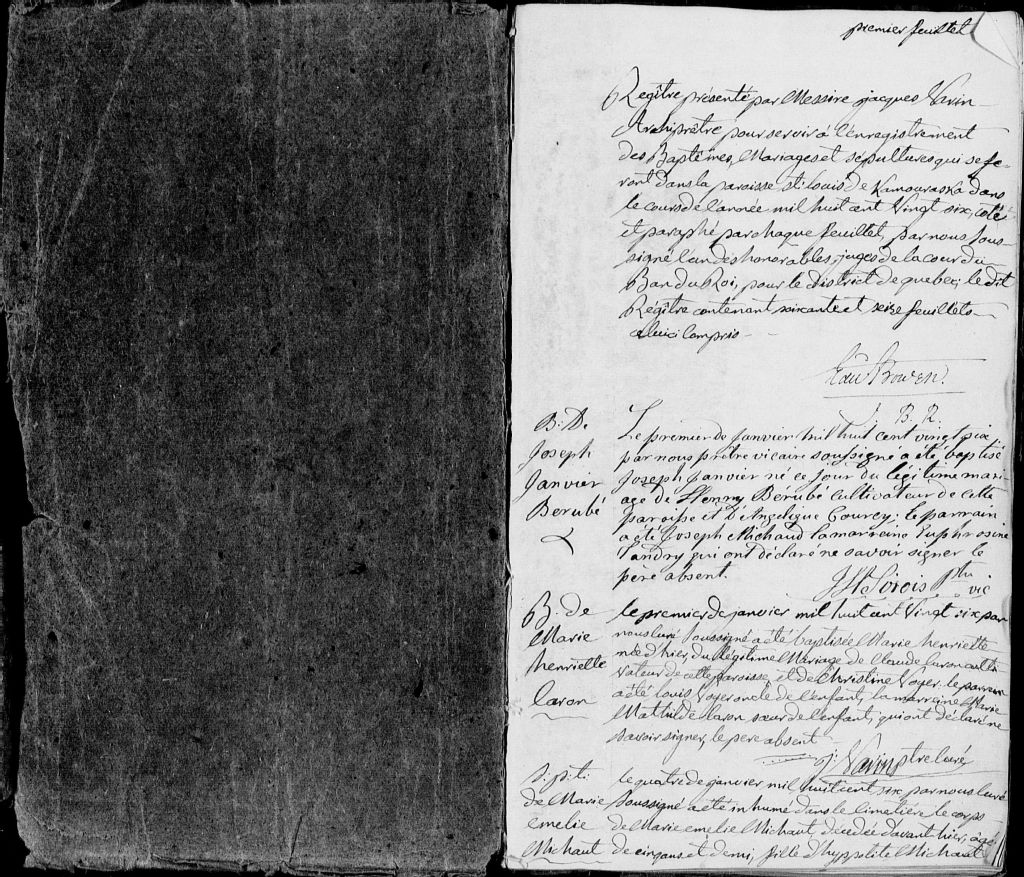 premier feuillet
Regître présenté par Messire jacques Varin
Archiprêtre pour servir à l'enregistrement
des Baptêmes, Mariages et sépultures qui se fe-
ront dans la paroisse st: Louis de Kamouraska dans
le cours de l'année mil huit cent Vingt six, coté
et paraphé par chaque feuillet, par nous sous-
signé l'un des honorables juges de la cour du
Ban du Roi, pour le District de quebec; le dit
Régître contenant soixante et seize feuillets
celuici Compris
Edw Bowen.
J. B. R.
B: De
Joseph
Janvier
Berubé
Le premier de Janvier mil huit cent vingt six
par nous prêtre vicaire soussigné a été baptisé
Joseph Janvier né ce jour du légitime mari-
age de Henry Bérubé cultivateur de cette
paroisse et D'Angélique Courcy; le parrain
a été Joseph Michaud la marreine Euphrosine
Landry qui ont déclaré ne savoir signer le
père absent.
Sirois Ptre
vic
B: de
Marie
henriette
Caron
le premier de janvier mil huit cent Vingt six par
nous Curé soussigné a été baptisée Marie henriette
née d'hier, du légitime Mariage de Claude Caron culti
vateur de cette paroisse, et de Christine Voyer. le parrein
a été Louis Voyer oncle de l'enfant, la marreine Marie
Mathilde Caron sœur de l'enfant, qui ont déclaré ne
savoir signer, le pere absent
j: Varin ptre Curé
S: p: t:
de Marie
emelie
Michaut
le quatre de janvier mil huit cent six par nous Curé
soussigné a été inhumé dans le Cimetière le corps
de Marie emelie Michaut, décédée d'avant-hier, agé
de cinq ans et demi, fille d'hyppolite Michaut